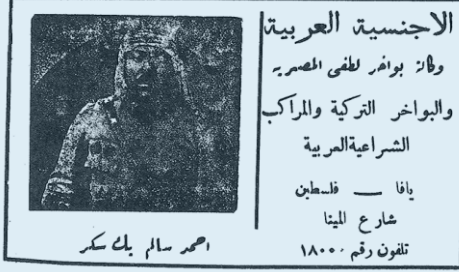 الاجنسية العربية
وكالة بواخر لطفى المصريه
والبواخر التركية والمراكب
الشراعية العربية
يافا — فلسطين
شارع المينا
تلفون رقم ١٨٠٠٠
احمد سالم بك سكر